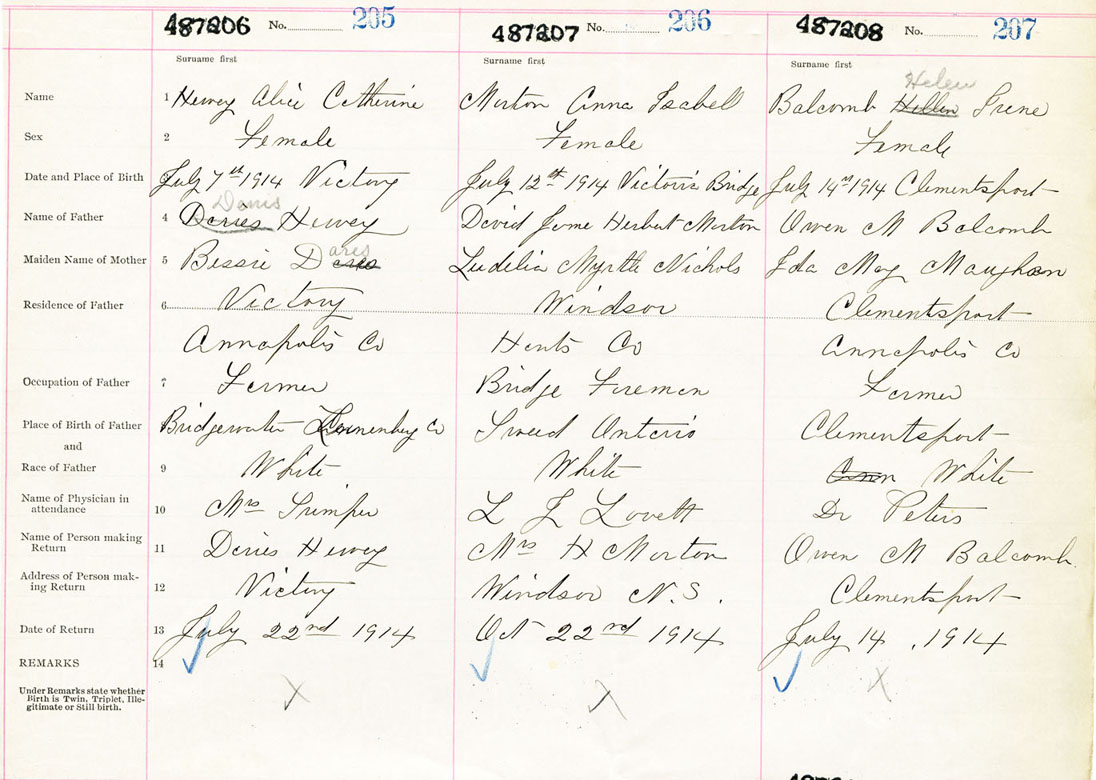 487206 No. 205 487207 No. 206 487208 No. 207
Surname first Surname first Surname first
Helen
Name 1 Hewey Alice Catherine Morton Anna Isabell Balcomb Hellen Irene
Sex 2 Female Female Female
Date and Place of Birth July 7th 1914 Victory July 12th 1914 Victoria Bridge July 14 1914 Clementsport
Name of Father 4 Hewey David Herbert Morton Owen M Balcomb
Maiden Name of Mother 5 Bessie Dares Ludelia Myrtle Nichols Ida May Maughan
Residence of Father 6 Victory Windsor Clementsport
Annapolis Co Hants Co Annapolis Co
Occupation of Father 7 Farmer Bridge Foreman Farmer
Place of Birth of Father Bridgewater Lunenburg Co Tweed Ontario Clementsport
and
Race of Father 9 White White White
Name of Physician in
attendance 10 Mrs Trimper L J Lovett Dr Peters
Name of Person making
Return 11 Hewey Mrs H Morton Owen M Balcomb.
Address of Person mak-
ing Return 12 Victory Windsor N.S. Clementsport
Date of Return 13 July 22nd 1914 Oct 22nd 1914 July 14, 1914
REMARKS 14
Under Remarks state whether
Birth is Twin, Triplet, Ille-
gitimate or Still birth.